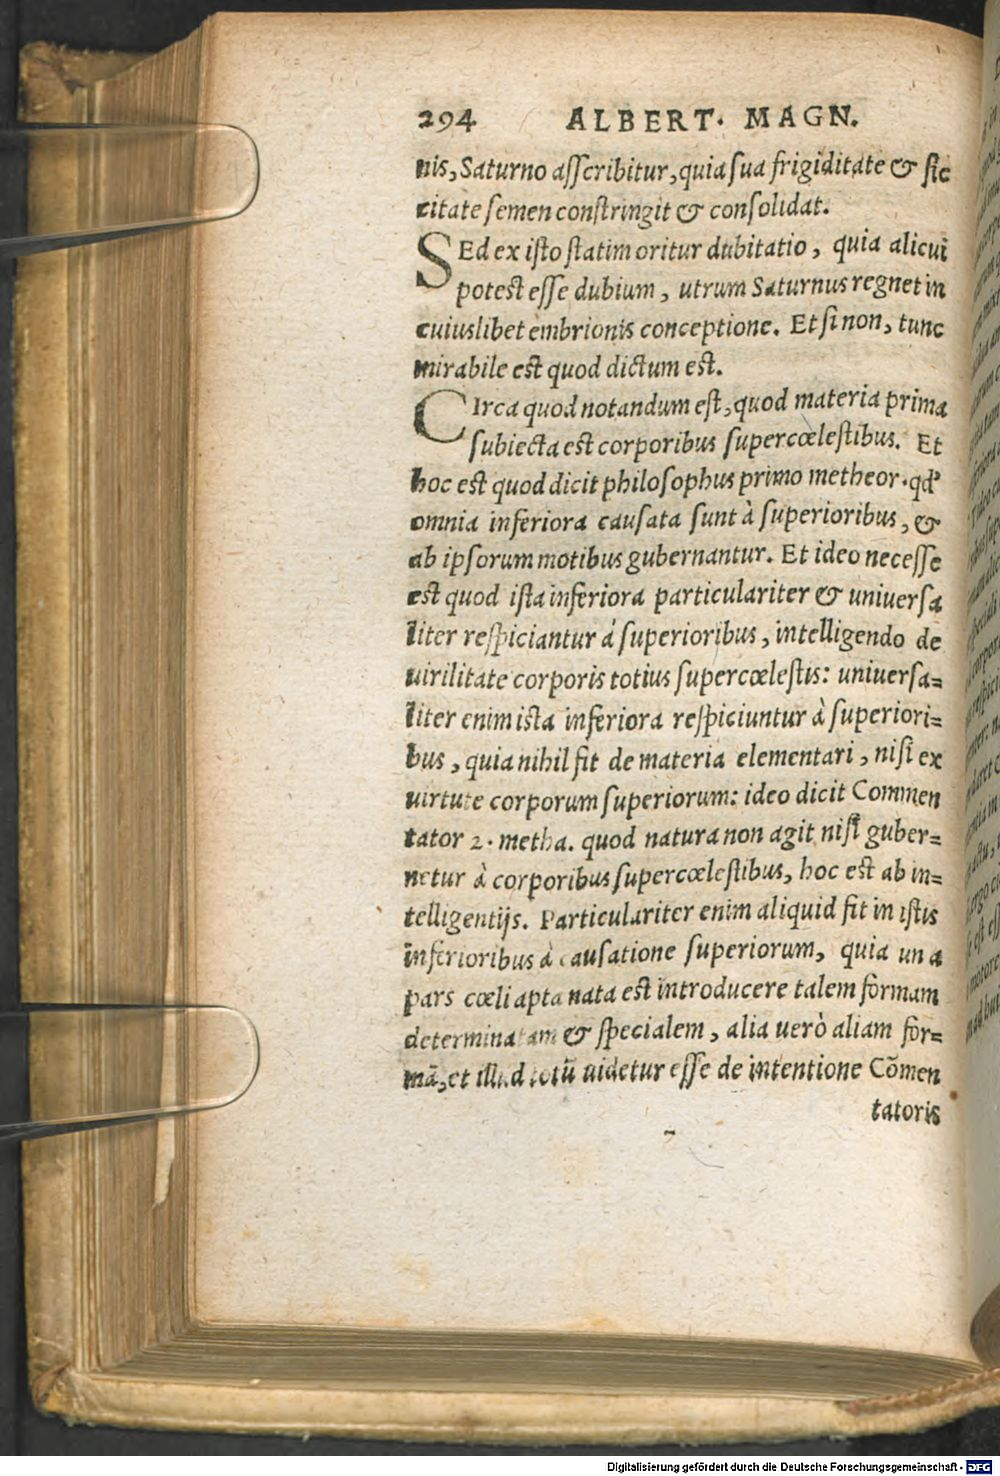 294 ALBERT. MAGN.
nis, Saturno ascribitur, quia sua frigiditate & sic
citate semen constringit & consolidat.
SEd ex isto statim oritur dubitatio, quia alicui
potest esse dubium, utrum Saturnus regnet in
cuiuslibet embrionis conceptione. Et si non, tunc
mirabile est quod dictum est.
CIrca quod notandum est, quod materia prima
subiecta est corporibus supercœlestibus. Et
hoc est quod dicit philosophus primo metheor. qd
omnia inferiora causata sunt à superioribus, &
ab ipsorum motibus gubernantur. Et ideo necesse
est quod ista inferiora particulariter & uniuersa
liter respiciantur à superioribus, intelligendo de
uirilitate corporis totius supercœlestis: uniuersa=
liter enim ista inferiora respiciuntur à superiori=
bus, quia nihil fit de materia elementari, nisi ex
uirtute corporum superiorum: ideo dicit Commen
tator 2. metha. quod natura non agit nisi guber=
netur à corporibus supercœlestibus, hoc est ab in=
telligentijs. Particulariter enim aliquid fit in istis
inferioribus à causatione superiorum, quia una
pars cœli apta nata est introducere talem formam
determinatam & specialem, alia uerò aliam for=
mā, et illud totū uidetur esse de intentione Cōmen
tatoris
Digitalisierung gefördert durch die Deutsche Forschungsgemeinschaft - DFG